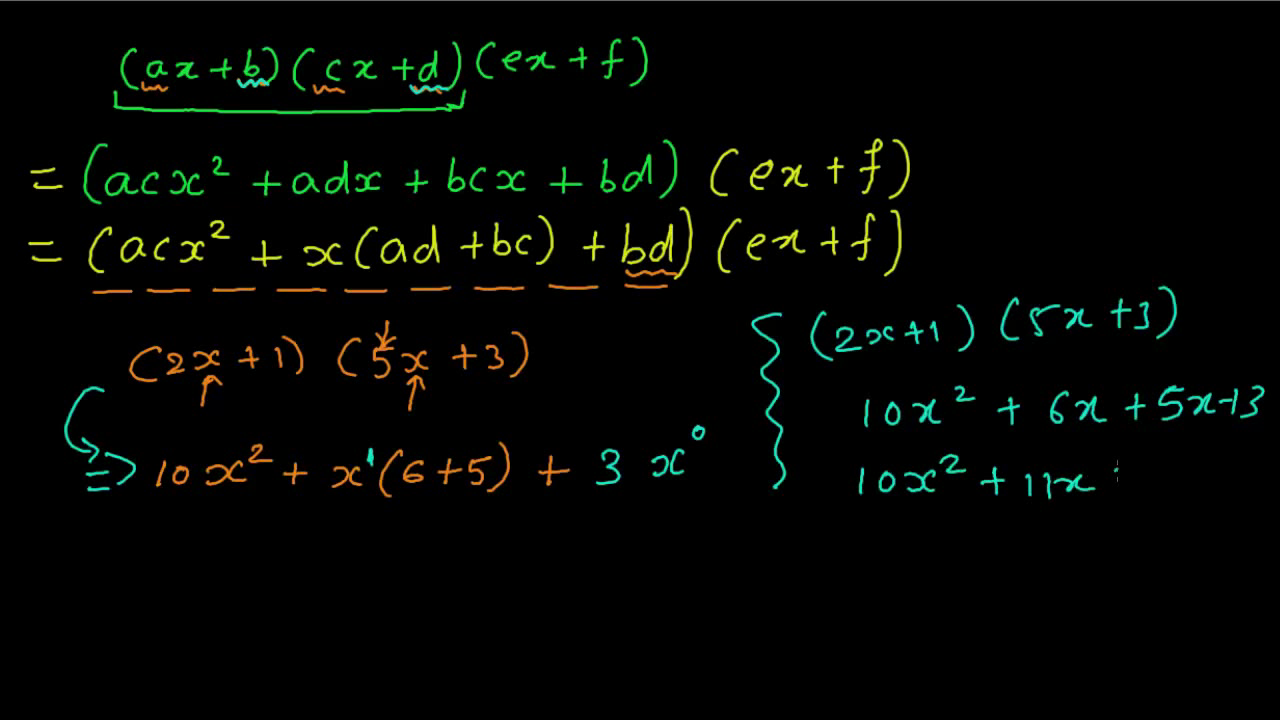 (ax+b)(cx+d)(ex+f)
=(acx²+adx+bcx+bd)(ex+f)
=(acx²+x(ad+bc)+bd)(ex+f)
(2x+1)(5x+3)
=> 10x²+x¹(6+5)+3x⁰
(2x+1)(5x+3)
10x²+6x+5x+3
10x²+11x